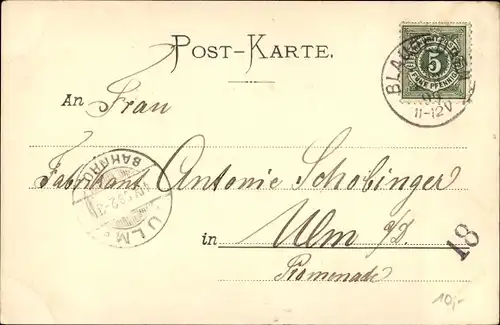 POST-KARTE.
5
FÜNF PFENNIG
11-12V
An Frau
BAHNHOF
Fabrikant Antonie Schobinger
ULM
in Ulm a/D.
18
Promenade
10,-